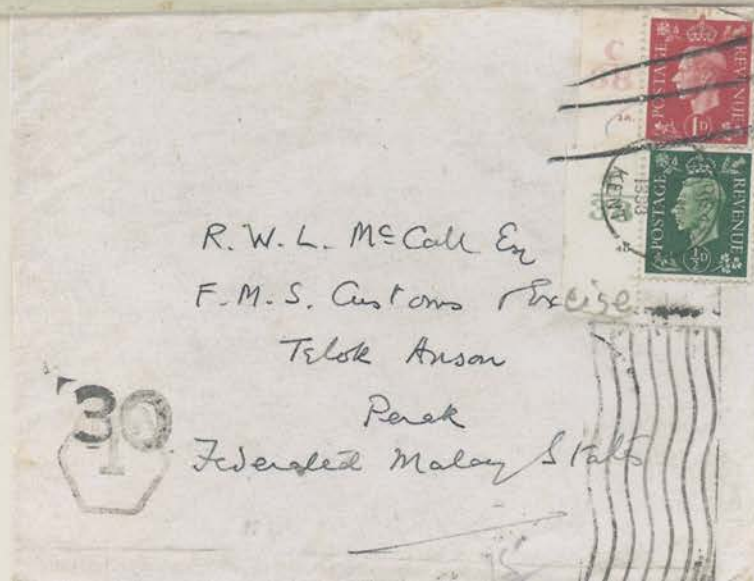 C
38
POSTAGE REVENUE
1D
KENT
1938
POSTAGE REVENUE
½D
R. W. L. McCall Esq
F. M. S. Customs & Excise
Telok Anson
Perak
Federated Malay States
30
T